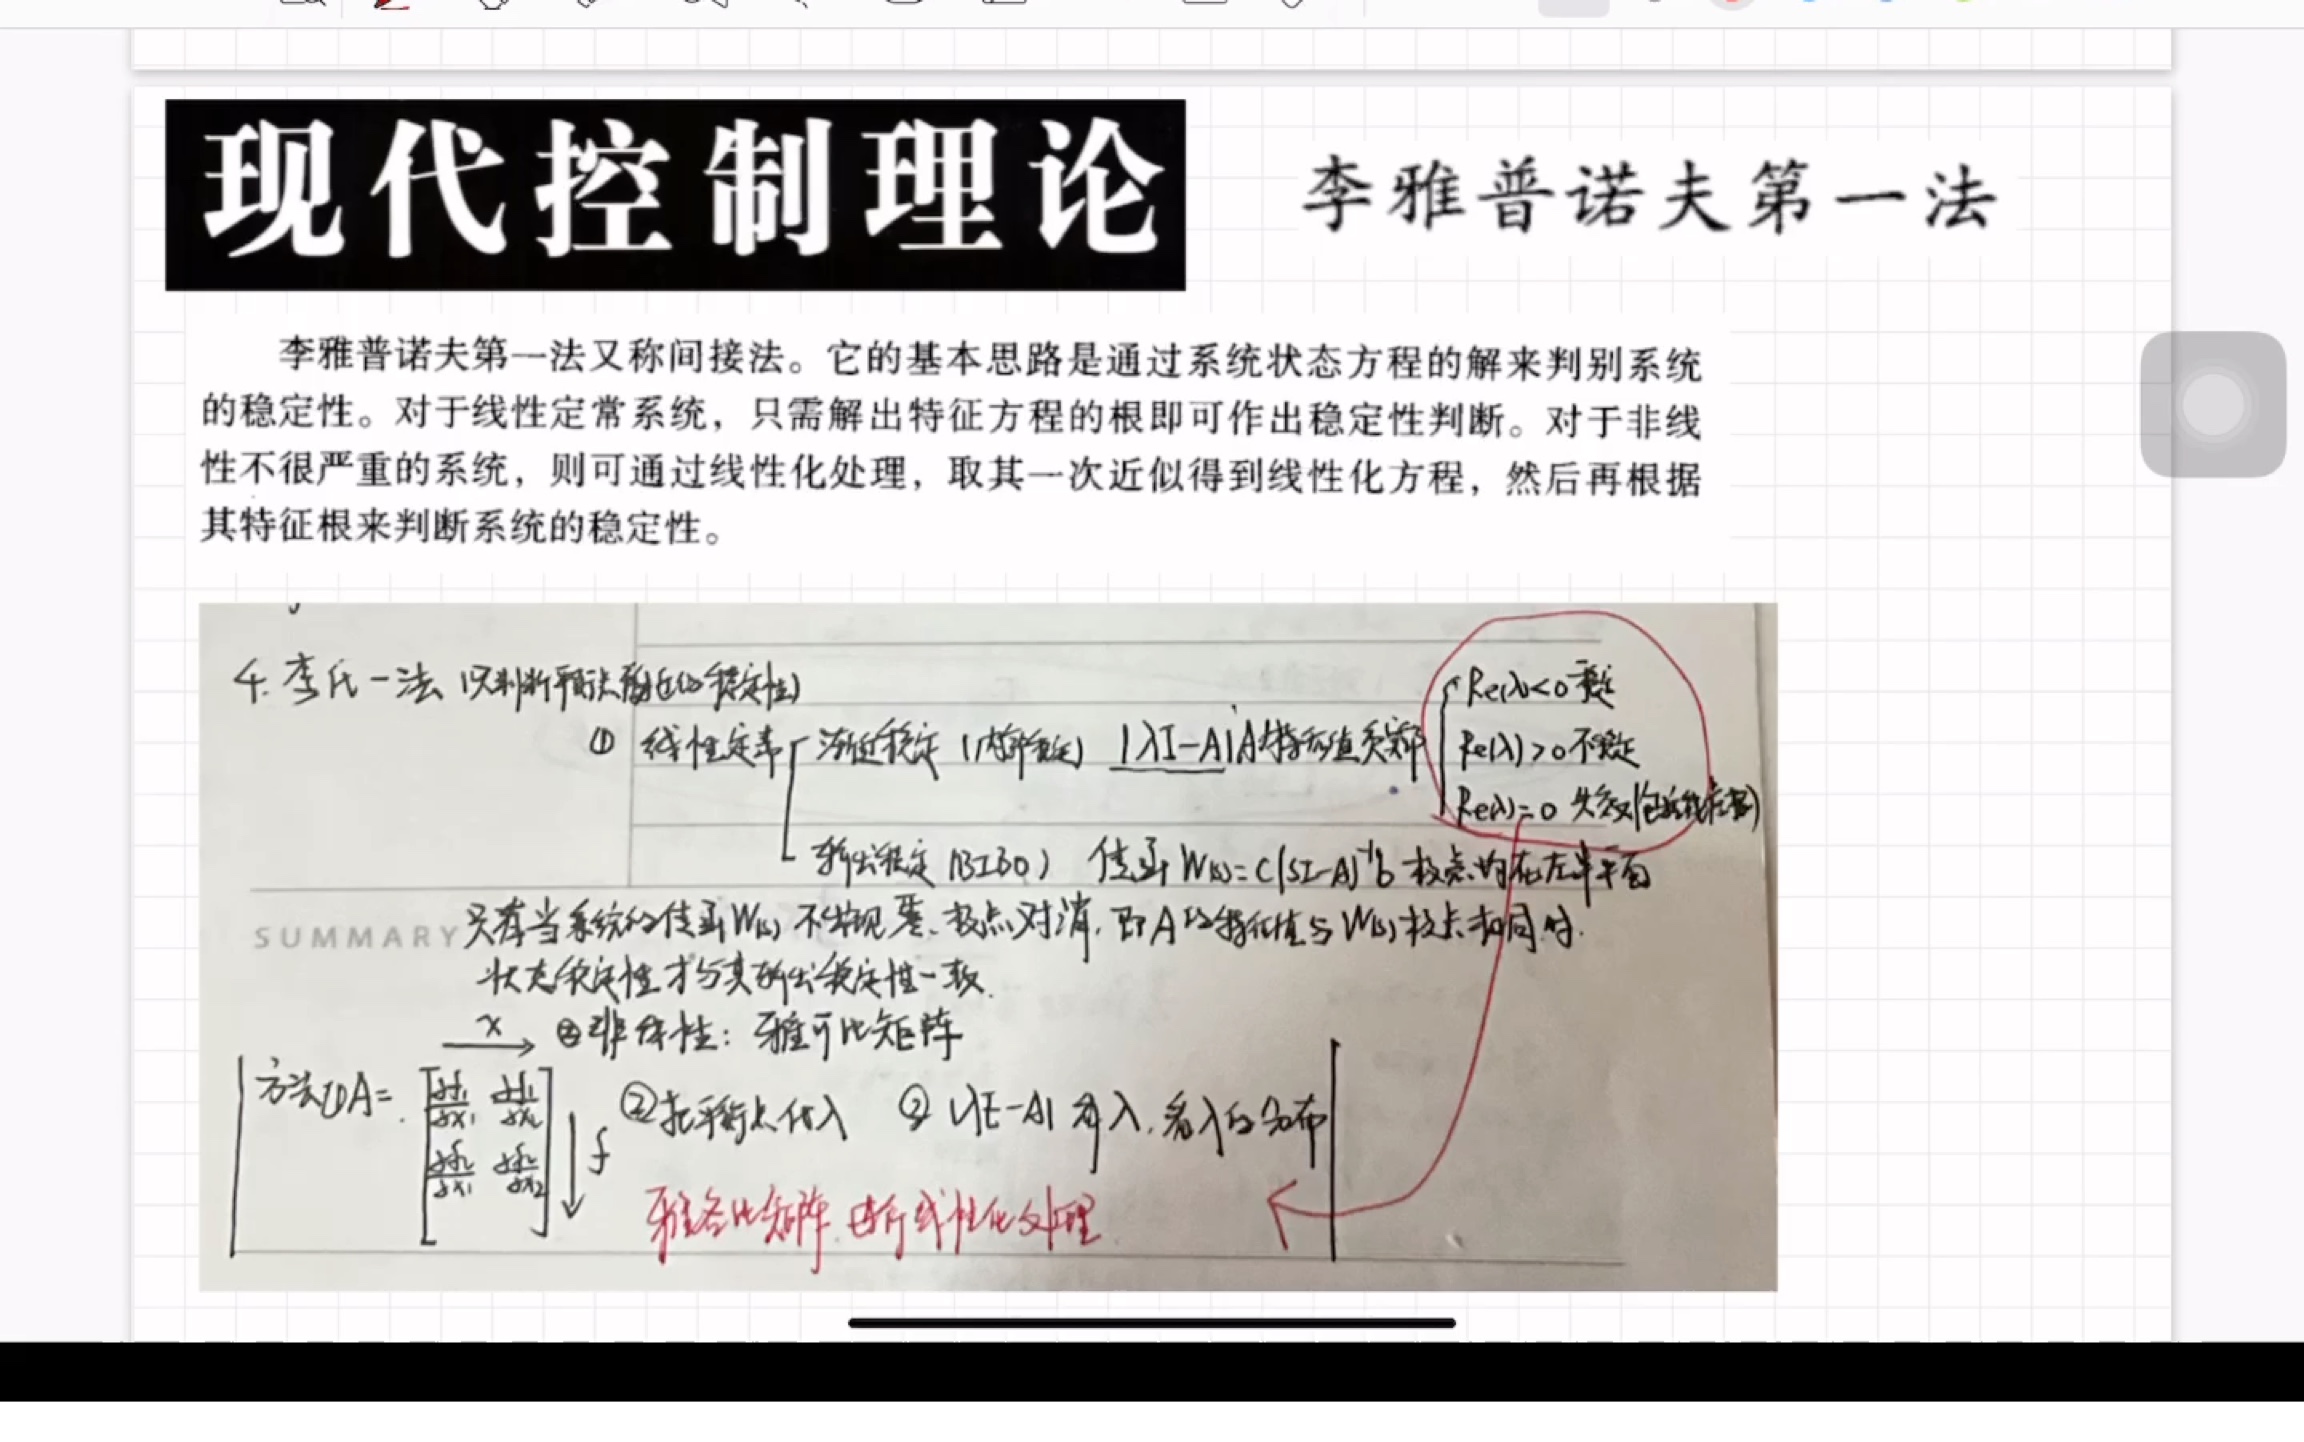 现代控制理论
李雅普诺夫第一法
李雅普诺夫第一法又称间接法。它的基本思路是通过系统状态方程的解来判别系统
的稳定性。对于线性定常系统，只需解出特征方程的根即可作出稳定性判断。对于非线
性不很严重的系统，则可通过线性化处理，取其一次近似得到线性化方程，然后再根据
其特征根来判断系统的稳定性。
4. 李氏一法 (只判断平衡点附近的稳定性)
① 线性定常 渐近稳定 (内部稳定) |λI-A| A特征值负实部
Re(λ)<0 稳定
Re(λ)>0 不稳定
Re(λ)=0 失效
输出稳定 (BIBO) 传函 W(s)=C(SI-A)⁻¹b 极点均在左半平面
SUMMARY
只有当系统的传函W(s)不出现零、极点对消，即A的特征值与W(s)极点相同时.
状态稳定性才与其输出稳定性一致.
x
② 非线性：雅可比矩阵
方法 ① A= [∂f₁/∂x₁ ∂f₁/∂x₂ ∂f₂/∂x₁ ∂f₂/∂x₂] f ② 把平衡点代入 ③ |λE-A| 求λ，看λ的分布
雅各比矩阵 进行线性化处理